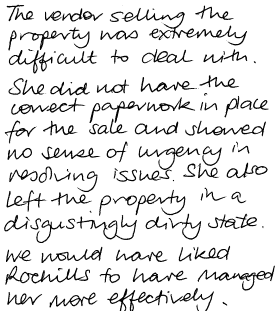 The vendor selling the
property was extremely
difficult to deal with.
She did not have the
correct paperwork in place
for the sale and showed
no sense of urgency in
resolving issues. She also
left the property in a
disgustingly dirty state.
We would have liked
Rochills to have managed
her more effectively.